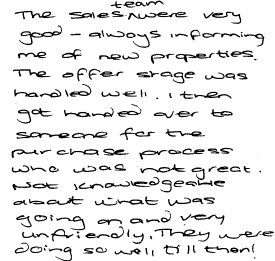 The sales team were very
good - always informing
me of new properties.
The offer stage was
handled well. I then
got handed over to
someone for the
purchase process
who was not great.
Not knowledgeable
about what was
going on and very
unfriendly. They were
doing so well till then!